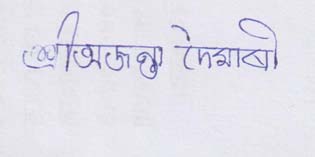 শ্রীঅজন্তা দৈমাৰী